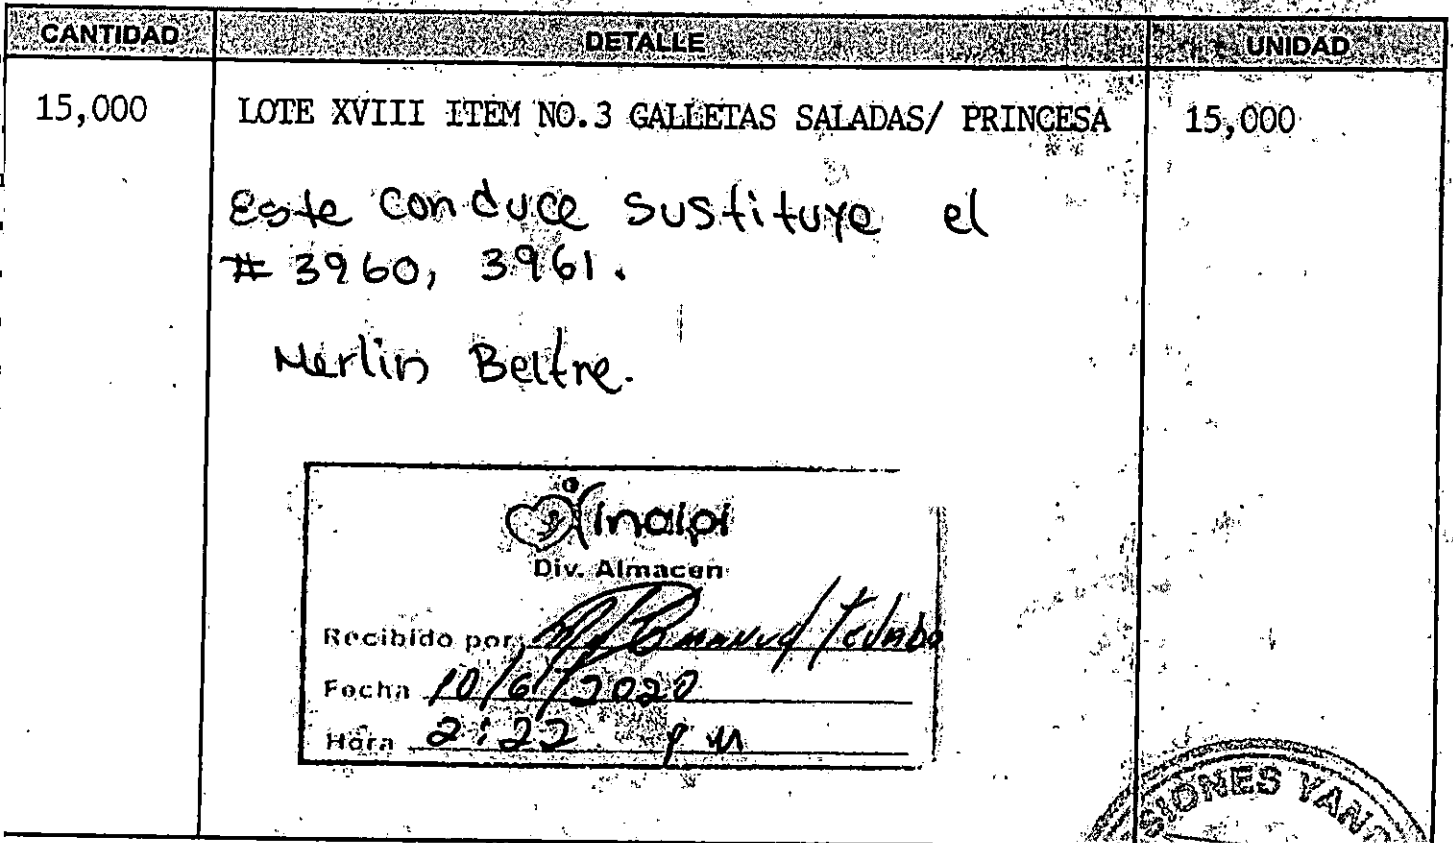 CANTIDAD DETALLE UNIDAD
15,000 LOTE XVIII ITEM NO.3 GALLETAS SALADAS/ PRINCESA 15,000
Este Conduce Sustituye el
# 3960, 3961.
Merlin Beltre.
inaipi
Div. Almacen
Recibido por: Emanuel
Fecha 10/6/2020
Hora 2:22 pm
SIONES YANG